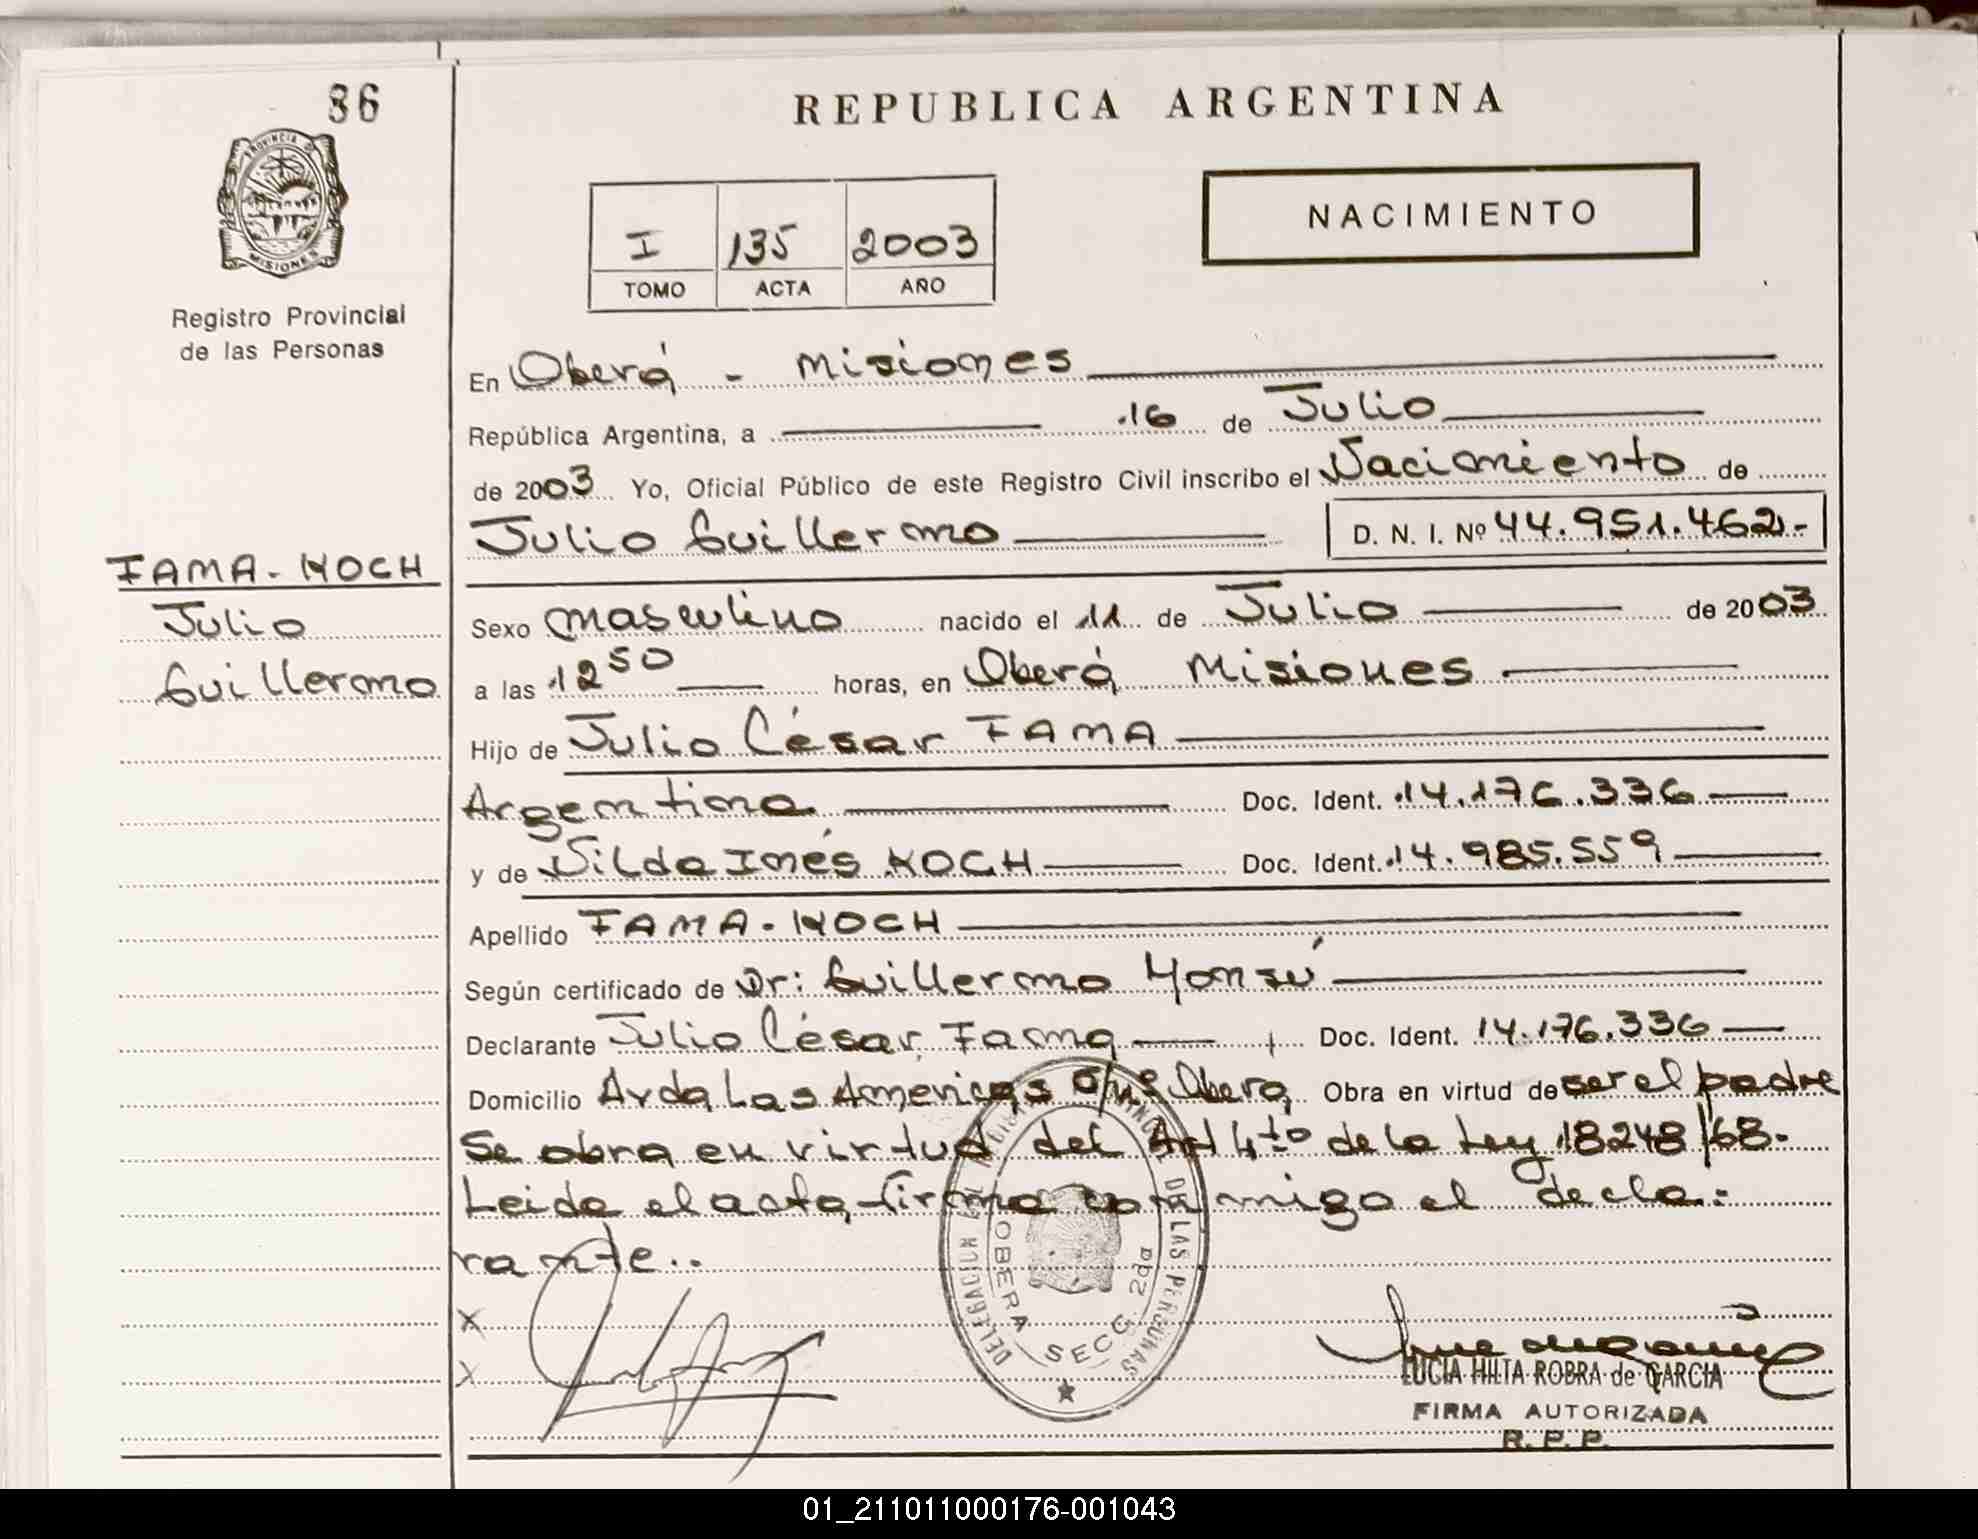 36
REPUBLICA ARGENTINA
PROVINCIA DE
MISIONES
Registro Provincial
de las Personas
NACIMIENTO
I 135 2003
TOMO ACTA AÑO
En Oberá - Misiones
República Argentina, a 16 de Julio
de 2003 Yo, Oficial Público de este Registro Civil inscribo el Nacimiento de
Julio Guillermo D. N. I. Nº 44.951.462.-
FAMA-KOCH
Julio
Guillermo
Sexo masculino nacido el 11 de Julio de 2003
a las 12 50 horas, en Oberá Misiones
Hijo de Julio César FAMA
Argentina Doc. Ident. 14.176.336
y de Nilda Inés KOCH Doc. Ident. 14.985.559
Apellido FAMA-KOCH
Según certificado de Dr: Guillermo
Declarante Julio César Fama Doc. Ident. 14.176.336
Domicilio Avda Las Americas S/nº Oberá Obra en virtud de ser el padre
Se obra en virtud del Art 4to de la Ley 18248/68.
Leida el acta, firma conmigo el decla:
rante..
X
X
DELEGACION DE LAS PERSONAS
OBERA SECC. 2da
LUCIA HILTA ROBRA de GARCIA
FIRMA AUTORIZADA
R. P. P.
01_211011000176-001043